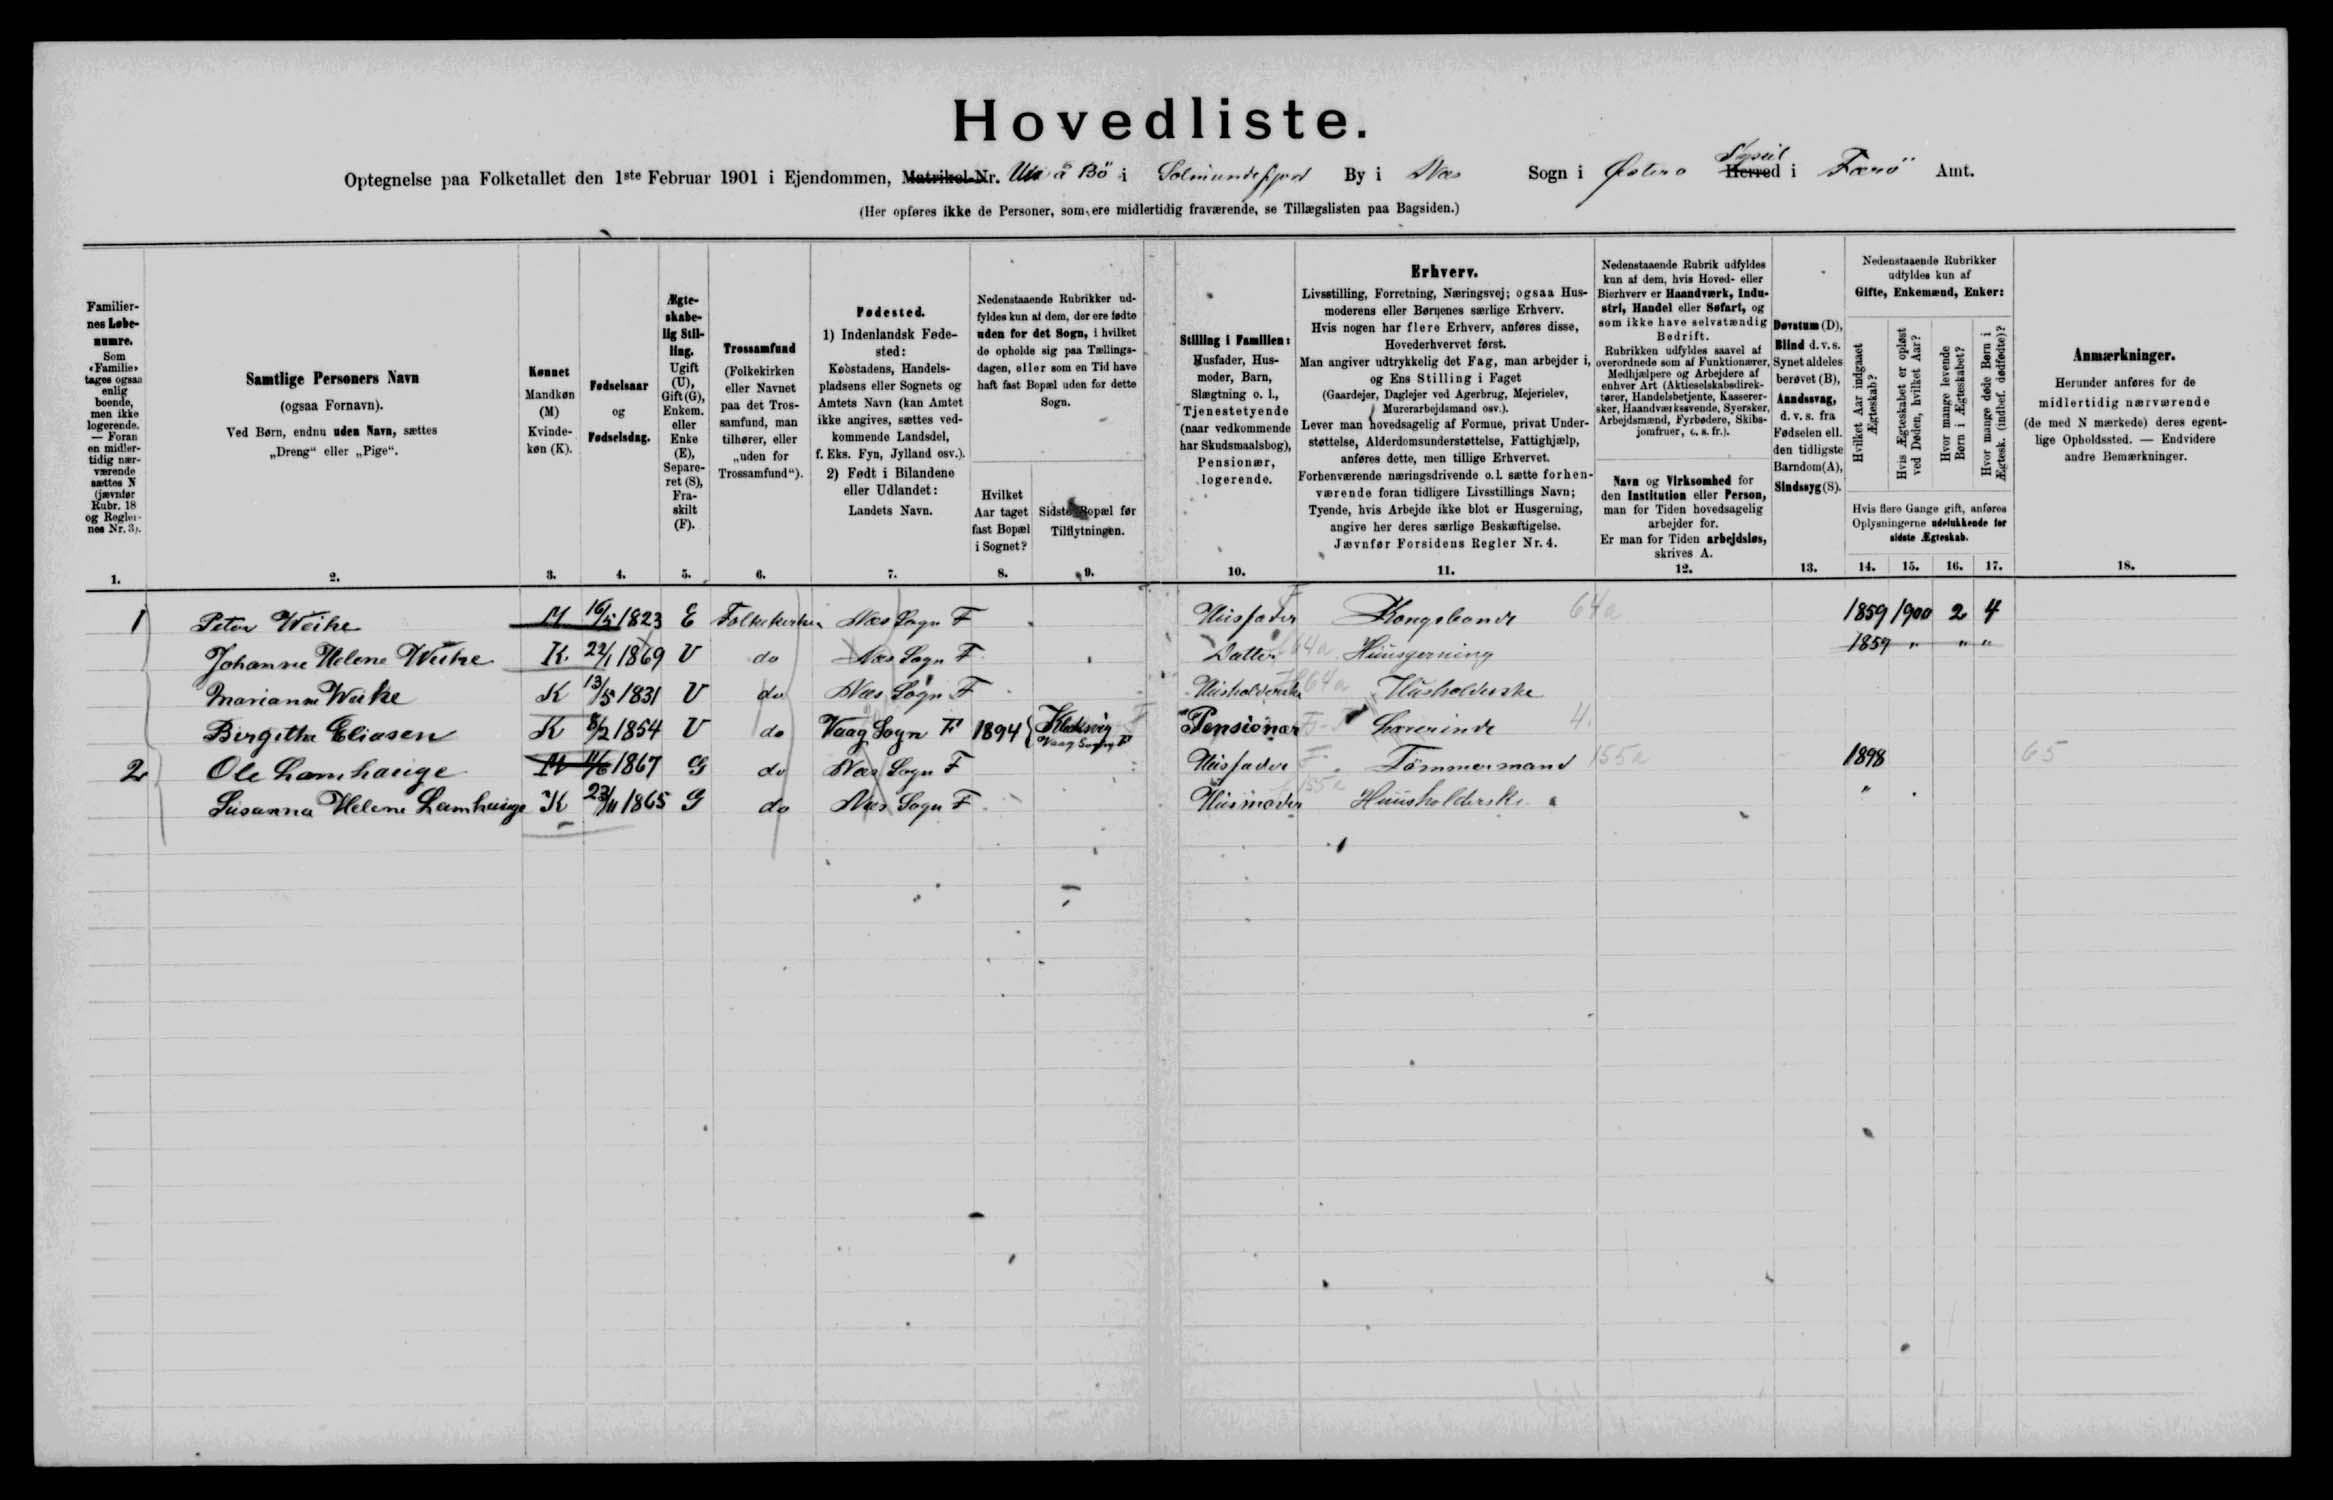 Hovedliste.
Optegnelse paa Folketallet den 1ste Februar 1901 i Ejendommen, Matrikel-Nr. å Bö i Solmundefjord By i Næs Sogn i Østerø Herred Syssel i Færö Amt.
(Her opføres ikke de Personer, som ere midlertidig fraværende, se Tillægslisten paa Bagsiden.)
Familiernes Løbenumre.
Som «Familie» tages ogsaa enlig boende, men ikke logerende. — Foran en midlertidig nærværende sættes N (jævnfør Rubr. 18 og Reglernes Nr. 3).
1.
Samtlige Personers Navn
(ogsaa Fornavn).
Ved Børn, endnu uden Navn, sættes
„Dreng“ eller „Pige“.
2.
Kønnet
Mandkøn (M)
Kvindekøn (K).
3.
Fødselsaar
og
Fødselsdag.
4.
Ægteskabelig Stilling.
Ugift (U), Gift (G), Enkem. eller Enke (E), Separeret (S), Fraskilt (F).
5.
Trossamfund
(Folkekirken eller Navnet paa det Trossamfund, man tilhører, eller „uden for Trossamfund“).
6.
Fødested.
1) Indenlandsk Fødested:
Købstadens, Handelspladsens eller Sognets og Amtets Navn (kan Amtet ikke angives, sættes vedkommende Landsdel, f. Eks. Fyn, Jylland osv.).
2) Født i Bilandene eller Udlandet:
Landets Navn.
7.
Nedenstaaende Rubrikker udfyldes kun af dem, der ere fødte uden for det Sogn, i hvilket de opholde sig paa Tællingsdagen, eller som en Tid have haft fast Bopæl uden for dette Sogn.
Hvilket Aar taget fast Bopæl i Sognet?
8.
Sidste Bopæl før Tilflytningen.
9.
Stilling i Familien:
Husfader, Husmoder, Barn, Slægtning o. l., Tjenestetyende (naar vedkommende har Skudsmaalsbog), Pensionær, logerende.
10.
Erhverv.
Livsstilling, Forretning, Næringsvej; ogsaa Husmoderens eller Børnenes særlige Erhverv.
Hvis nogen har flere Erhverv, anføres disse, Hovederhvervet først.
Man angiver udtrykkelig det Fag, man arbejder i, og Ens Stilling i Faget
(Gaardejer, Daglejer ved Agerbrug, Mejerielev, Murerarbejdsmand osv.).
Lever man hovedsagelig af Formue, privat Understøttelse, Alderdomsunderstøttelse, Fattighjælp, anføres dette, men tillige Erhvervet.
Forhenværende næringsdrivende o. l. sætte forhenværende foran tidligere Livsstillings Navn;
Tyende, hvis Arbejde ikke blot er Husgerning, angive her deres særlige Beskæftigelse.
Jævnfør Forsidens Regler Nr. 4.
11.
Nedenstaaende Rubrik udfyldes kun af dem, hvis Hoved- eller Bierhverv er Haandværk, Industri, Handel eller Søfart, og som ikke have selvstændig Bedrift.
Rubrikken udfyldes saavel af overordnede som af Funktionærer, Medhjælpere og Arbejdere af enhver Art (Aktieselskabsdirektører, Handelsbetjente, Kasserersker, Haandværkssvende, Syersker, Arbejdsmænd, Fyrbødere, Skibsjomfruer, o. s. fr.).
Navn og Virksomhed for den Institution eller Person, man for Tiden hovedsagelig arbejder for.
Er man for Tiden arbejdsløs, skrives A.
12.
Døvstum (D), Blind d. v. s. Synet aldeles berøvet (B), Aandssvag, d. v. s. fra Fødselen ell. den tidligste Barndom (A), Sindssyg (S).
13.
Nedenstaaende Rubrikker udfyldes kun af
Gifte, Enkemænd, Enker:
Hvilket Aar indgaaet Ægteskab?
Hvis Ægteskabet er opløst ved Døden, hvilket Aar?
Hvor mange levende Børn i Ægteskabet?
Hvor mange døde Børn i Ægtesk. (indbef. dødfødte)?
Hvis flere Gange gift, anføres Oplysningerne udelukkende for sidste Ægteskab.
14. 15. 16. 17.
Anmærkninger.
Herunder anføres for de midlertidig nærværende (de med N mærkede) deres egentlige Opholdssted. — Endvidere andre Bemærkninger.
18.
1 Peter Weihe M 16/5 1823 E Folkekirken Næs Sogn F Huusfader Kongsbonde 64a 1859 1900 2 4
Johanne Helene Weihe K. 22/1 1869 U do Næs Sogn F Datter 64a Huusgerning 1859 " " "
Marianne Weihe K 13/5 1831 U do Næs Sogn F Husholderske 64a Husholderske
Birgitha Eliasen K 8/2 1854 U do Vaag Sogn F 1894 Klaksvig Vaag Sogn F Pensionær Lærerinde 4.
2 Ole Lamhauge M 11/6 1867 G do Næs Sogn F Huusfader F Tömmermand 155a 1898 65
Susanna Helene Lamhauge K 23/11 1865 G do Næs Sogn F Huusmoder 155a Huusholderske "